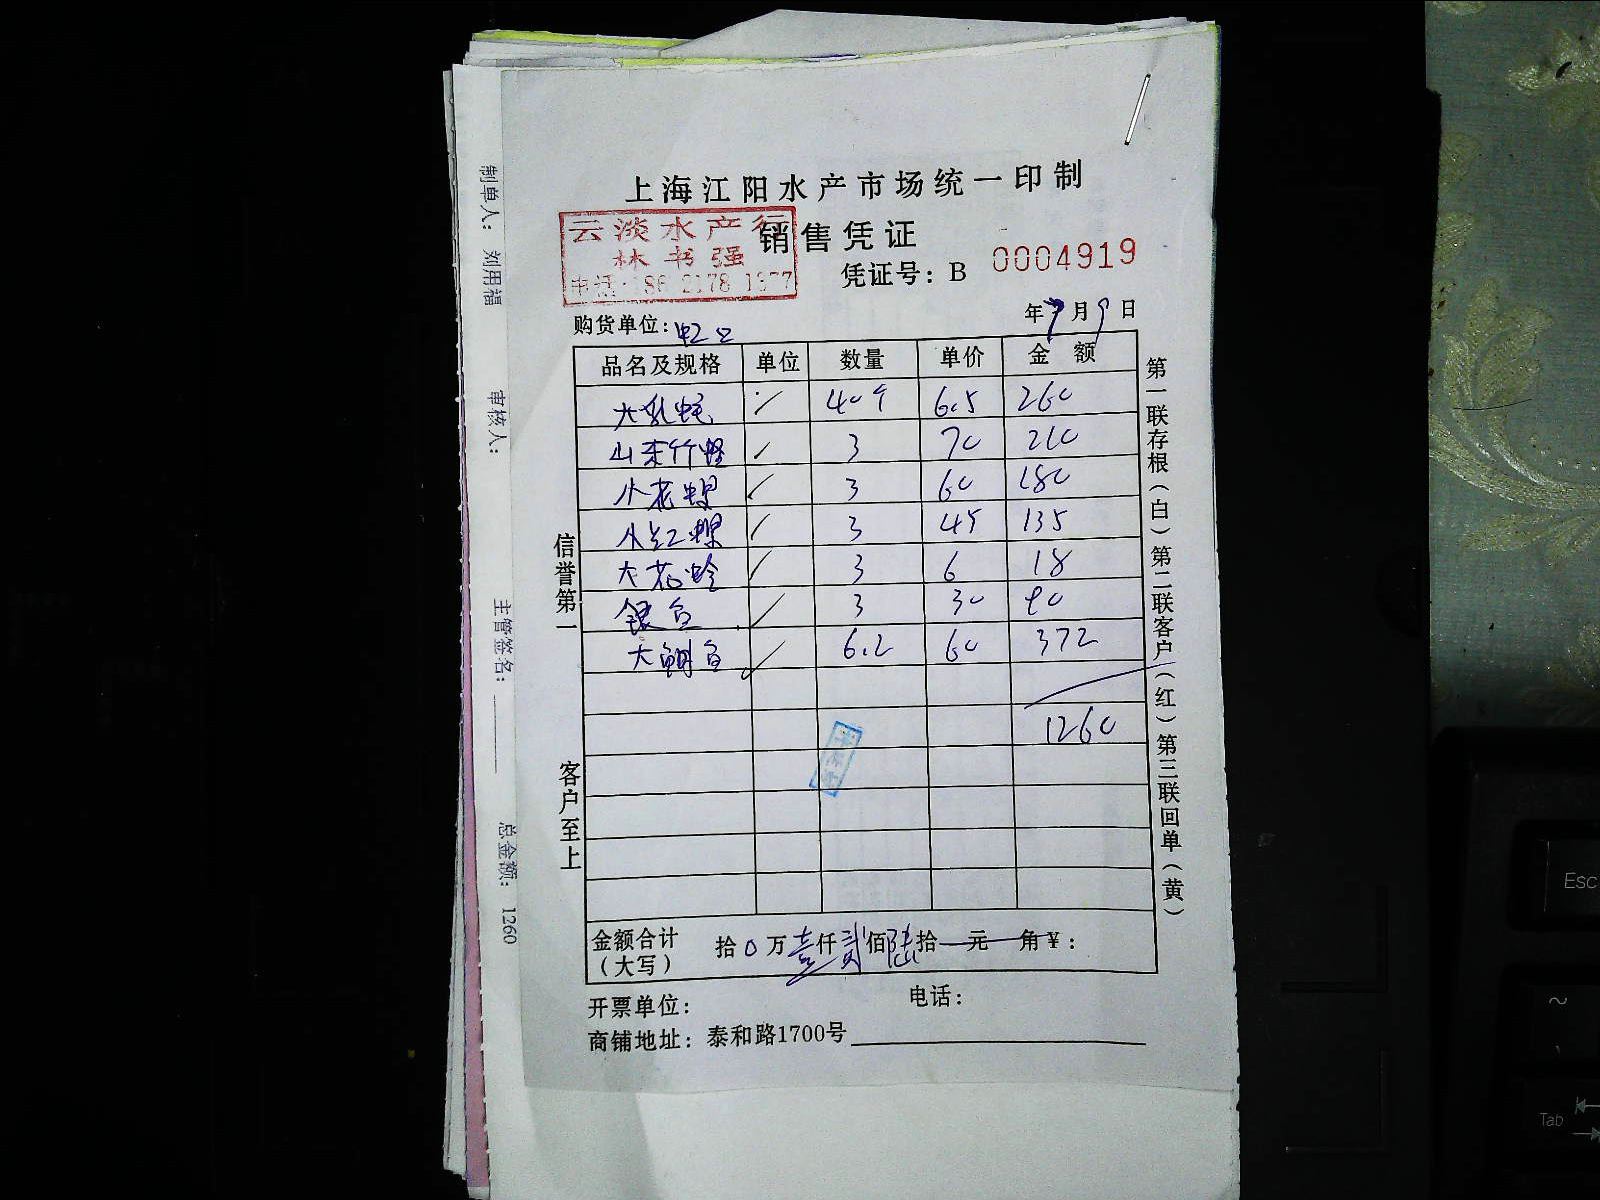 上海江阳水产市场统一印制
云淡水产行
销售凭证
林书强
凭证号：B 0004919
购货单位：虹口
年 9月9日
品名及规格 单位 数量 单价 金额
40个 6.5 260
山东竹蛏 3 70 210
小花螺 3 60 180
小红螺 3 45 135
大花蛤 3 6 18
银鱼 3 30 90
大鲷鱼 6.2 60 372
1260
金额合计（大写） 拾0万壹仟贰佰陆拾元角￥：
开票单位： 电话：
商铺地址：泰和路1700号
信誉第一
客户至上
第一联存根（白）第二联客户（红）第三联回单（黄）
制单人： 刘用福
审核人：
主管签名：
总金额： 1260
Esc
~
Tab